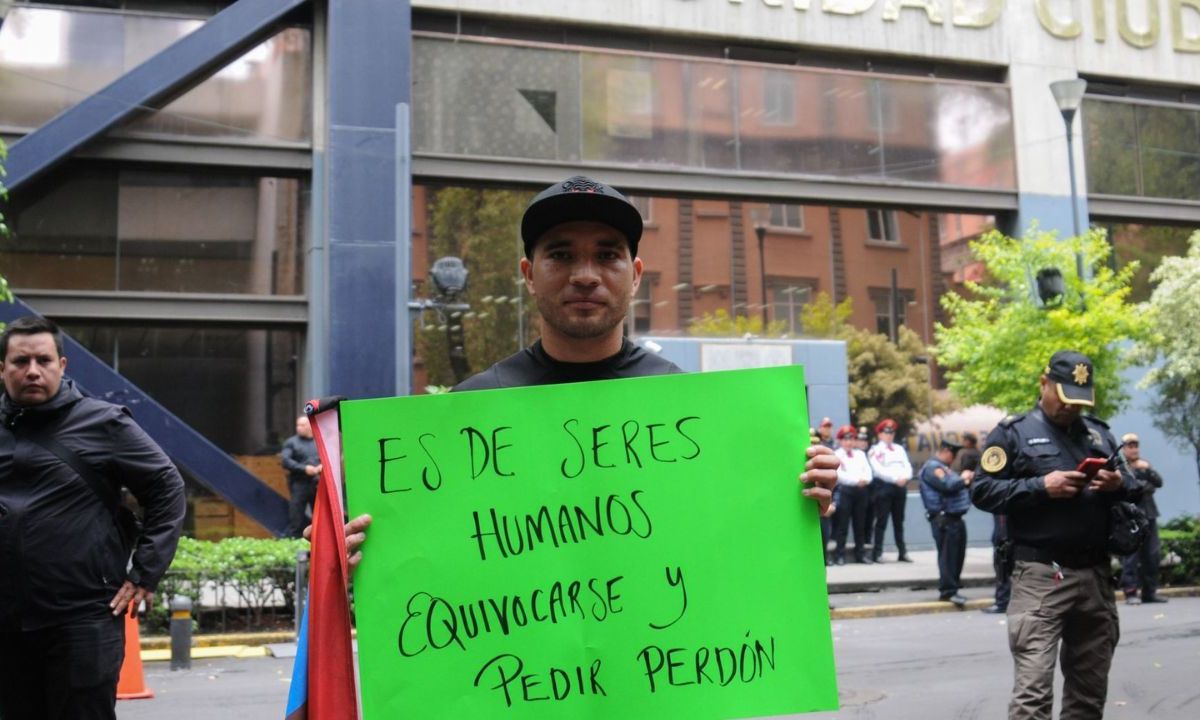 DAD CIUD
ES DE SERES
HUMANOS
EQUIVOCARSE Y
PEDIR PERDÓN